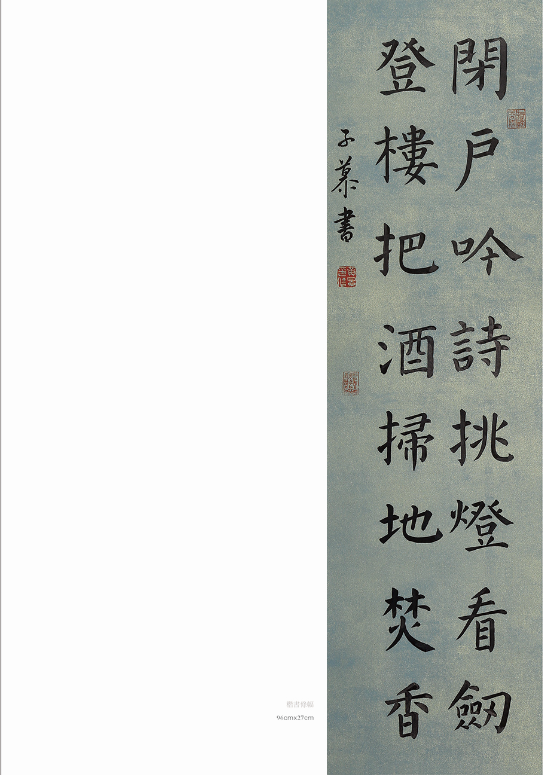 閉戶吟詩挑燈看劒
登樓把酒掃地焚香
子慕書
楷書條幅
96cmx27cm